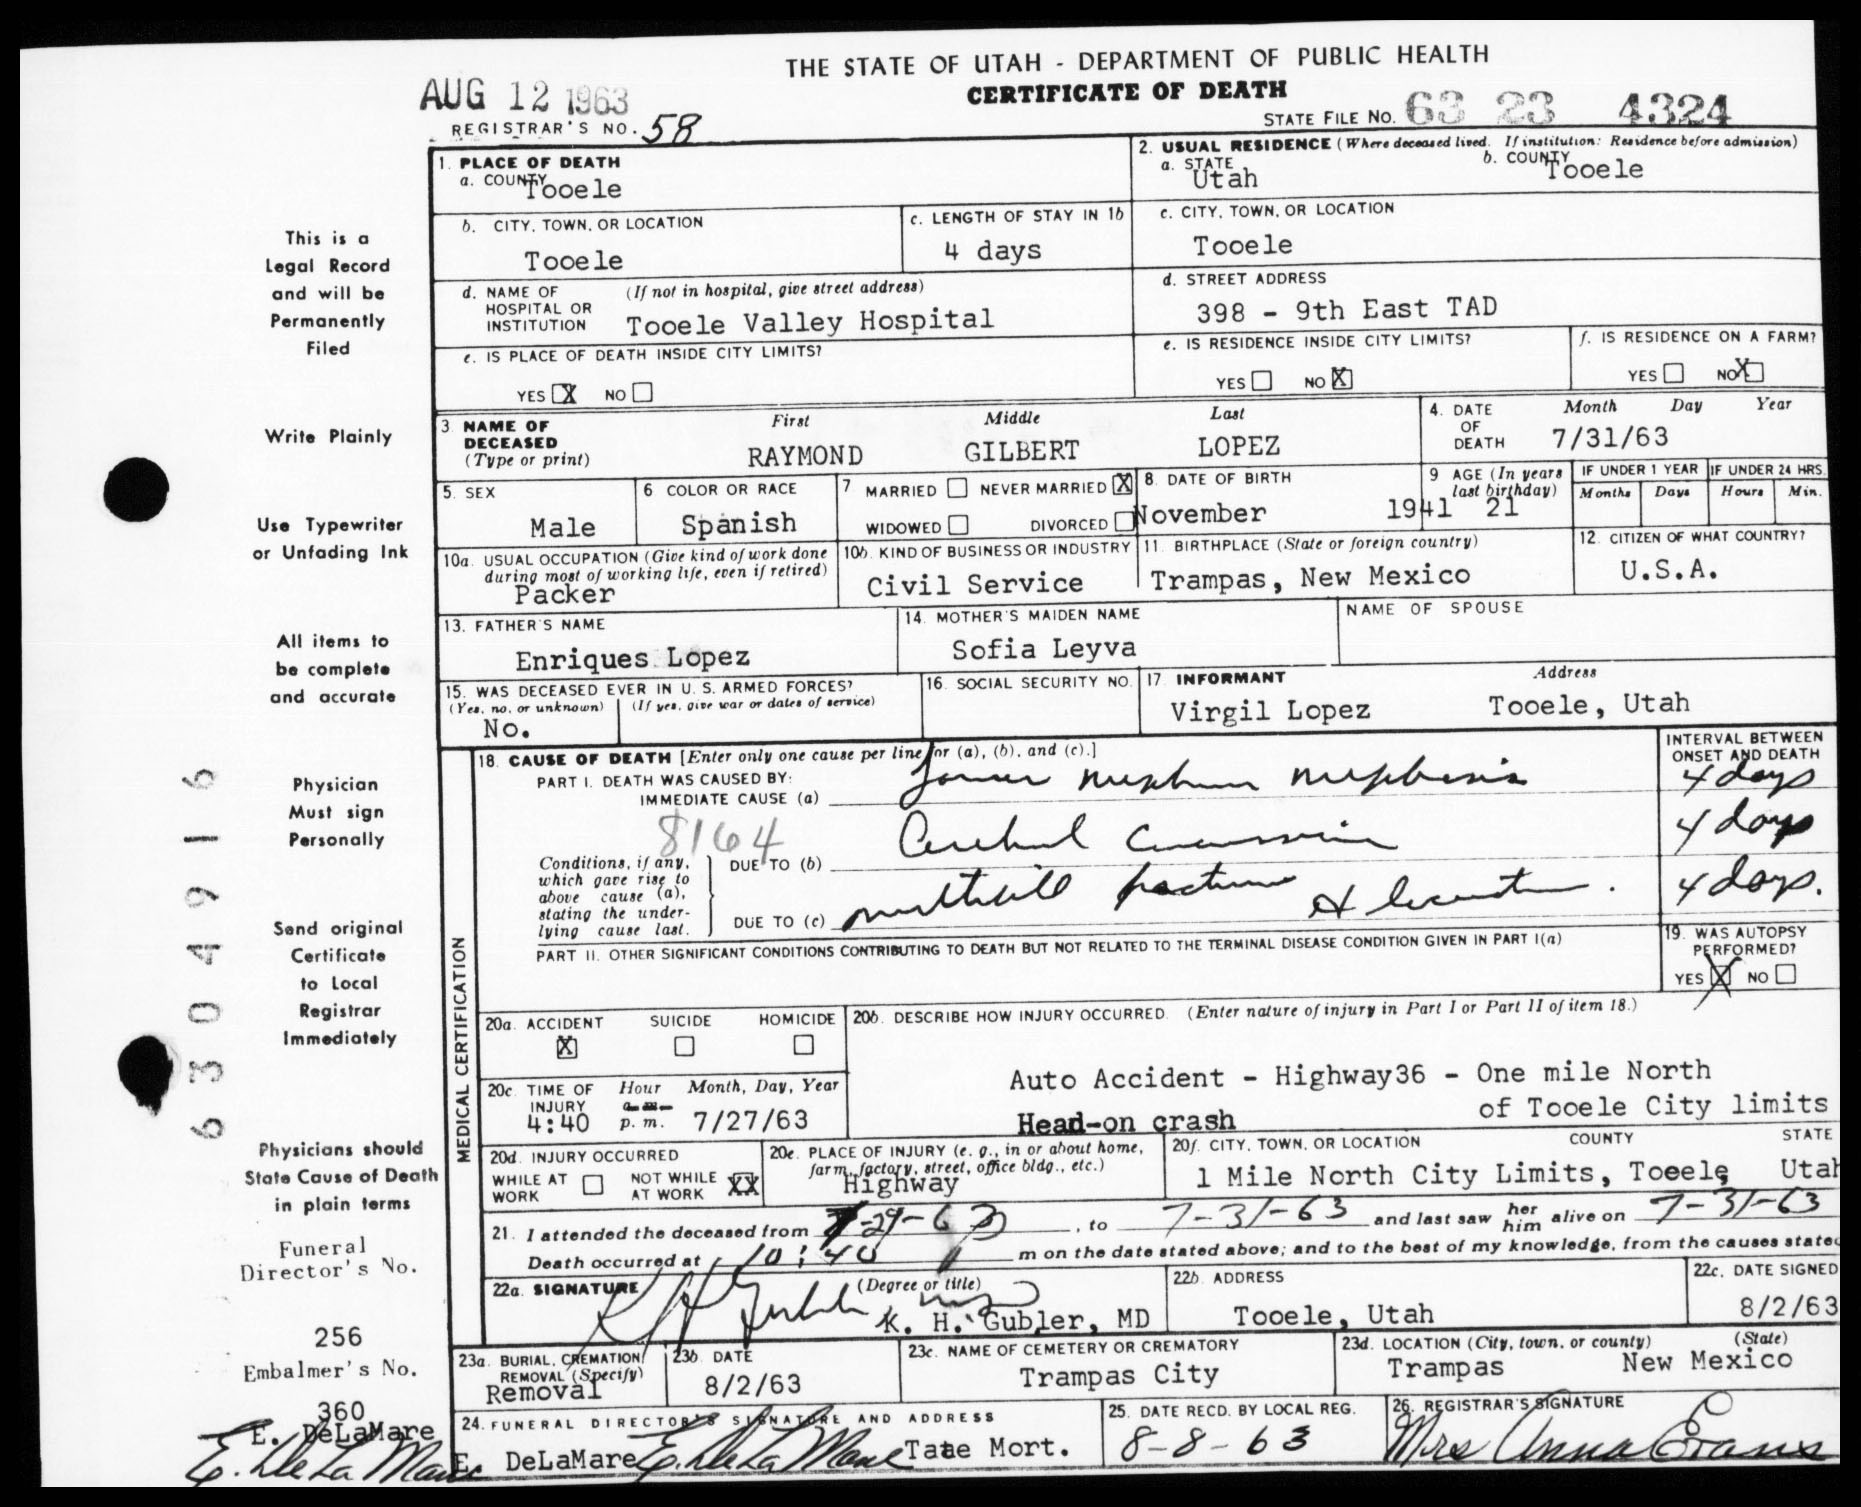 THE STATE OF UTAH - DEPARTMENT OF PUBLIC HEALTH
CERTIFICATE OF DEATH
AUG 12 1963
REGISTRAR'S NO. 58
STATE FILE NO. 63 23 4324
This is a
Legal Record
and will be
Permanently
Filed
Write Plainly
Use Typewriter
or Unfading Ink
All items to
be complete
and accurate
Physician
Must sign
Personally
Send original
Certificate
to Local
Registrar
Immediately
Physicians should
State Cause of Death
in plain terms
Funeral
Director's No.
256
Embalmer's No.
360
E. DeLaMare
E. DeLaMare
6304916
1. PLACE OF DEATH
a. COUNTY Tooele
b. CITY, TOWN, OR LOCATION
Tooele
c. LENGTH OF STAY IN 1b
4 days
d. NAME OF HOSPITAL OR INSTITUTION (If not in hospital, give street address)
Tooele Valley Hospital
e. IS PLACE OF DEATH INSIDE CITY LIMITS?
YES X NO
2. USUAL RESIDENCE (Where deceased lived. If institution: Residence before admission)
a. STATE Utah b. COUNTY Tooele
c. CITY, TOWN, OR LOCATION
Tooele
d. STREET ADDRESS
398 - 9th East TAD
e. IS RESIDENCE INSIDE CITY LIMITS?
YES NO X
f. IS RESIDENCE ON A FARM?
YES NO X
3. NAME OF DECEASED (Type or print)
First Middle Last
RAYMOND GILBERT LOPEZ
4. DATE OF DEATH Month Day Year
7/31/63
5. SEX
Male
6 COLOR OR RACE
Spanish
7 MARRIED NEVER MARRIED X
WIDOWED DIVORCED
8. DATE OF BIRTH
November 1941
9 AGE (In years last birthday)
21
IF UNDER 1 YEAR IF UNDER 24 HRS.
Months Days Hours Min.
10a. USUAL OCCUPATION (Give kind of work done during most of working life, even if retired)
Packer
10b. KIND OF BUSINESS OR INDUSTRY
Civil Service
11. BIRTHPLACE (State or foreign country)
Trampas, New Mexico
12. CITIZEN OF WHAT COUNTRY?
U.S.A.
13. FATHER'S NAME
Enriques Lopez
14. MOTHER'S MAIDEN NAME
Sofia Leyva
NAME OF SPOUSE
15. WAS DECEASED EVER IN U. S. ARMED FORCES?
(Yes, no, or unknown) (If yes, give war or dates of service)
No.
16. SOCIAL SECURITY NO.
17. INFORMANT Address
Virgil Lopez Tooele, Utah
MEDICAL CERTIFICATION
18. CAUSE OF DEATH [Enter only one cause per line for (a), (b), and (c).]
PART I. DEATH WAS CAUSED BY:
IMMEDIATE CAUSE (a) lower nephron nephrosis
8164
Conditions, if any, which gave rise to above cause (a), stating the underlying cause last.
DUE TO (b) Cerebral Concussion
DUE TO (c) multiple fractures & lacerations.
INTERVAL BETWEEN ONSET AND DEATH
4 days
4 days
4 days.
PART II. OTHER SIGNIFICANT CONDITIONS CONTRIBUTING TO DEATH BUT NOT RELATED TO THE TERMINAL DISEASE CONDITION GIVEN IN PART I(a)
19. WAS AUTOPSY PERFORMED?
YES X NO
20a. ACCIDENT SUICIDE HOMICIDE
X
20b. DESCRIBE HOW INJURY OCCURRED. (Enter nature of injury in Part I or Part II of item 18.)
Auto Accident - Highway36 - One mile North
of Tooele City limits
Head-on crash
20c. TIME OF INJURY Hour Month, Day, Year
a. m.
4:40 p. m. 7/27/63
20d. INJURY OCCURRED
WHILE AT WORK NOT WHILE AT WORK XX
20e. PLACE OF INJURY (e. g., in or about home, farm, factory, street, office bldg., etc.)
Highway
20f. CITY, TOWN, OR LOCATION COUNTY STATE
1 Mile North City Limits, Toeele, Utah
21. I attended the deceased from 7-29-63, to 7-31-63 and last saw her him alive on 7-31-63
Death occurred at 10:40 m on the date stated above; and to the best of my knowledge, from the causes stated
22a. SIGNATURE (Degree or title)
K H Gubler
K. H. Gubler, MD
22b. ADDRESS
Tooele, Utah
22c. DATE SIGNED
8/2/63
23a. BURIAL, CREMATION, REMOVAL (Specify)
Removal
23b. DATE
8/2/63
23c. NAME OF CEMETERY OR CREMATORY
Trampas City
23d. LOCATION (City, town, or county) (State)
Trampas New Mexico
24. FUNERAL DIRECTOR'S SIGNATURE AND ADDRESS
E. DeLaMare E. DeLaMare Tate Mort.
25. DATE RECD. BY LOCAL REG.
8-8-63
26. REGISTRAR'S SIGNATURE
Mrs Anna Evans